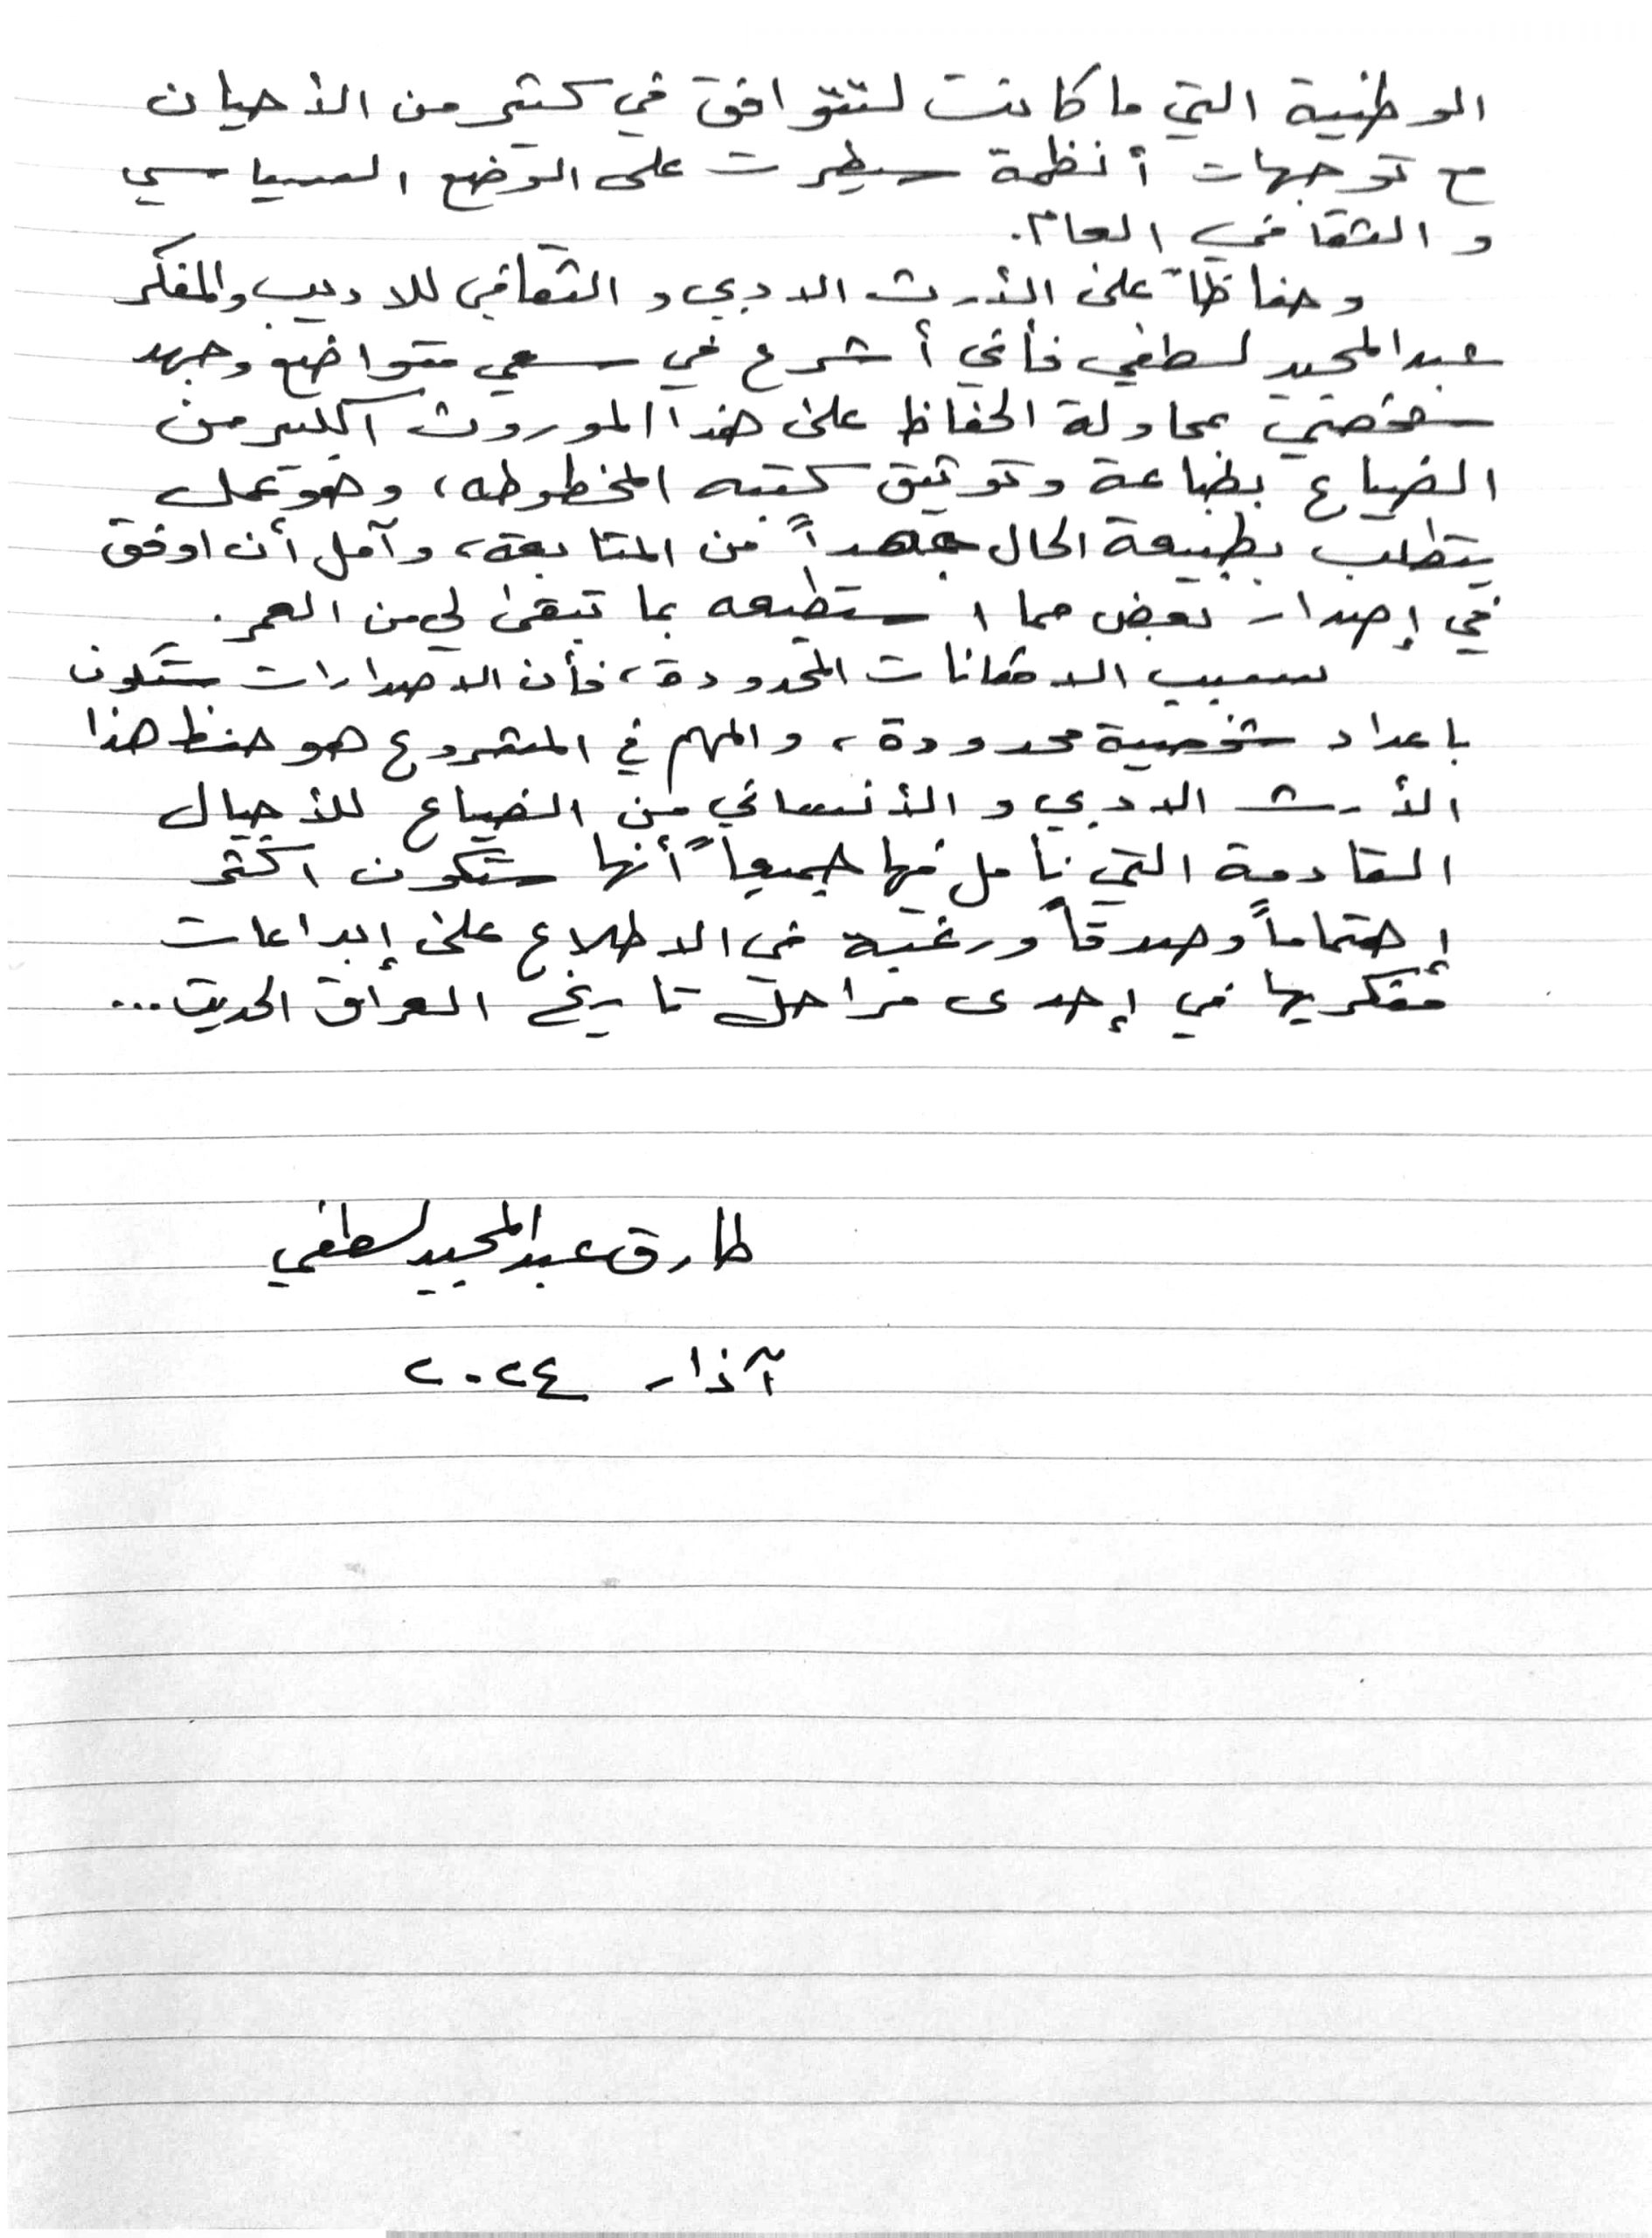 الوطنية التي ما كانت لتتوافق في كثير من الأحيان
مع توجهات أنظمة سيطرت على الوضع السياسي
و الثقافي العام.
وحفاظاً على الأرث الادبي و الثقافي للاديب والمفكر
عبد المجيد لطفي فأني أشرع في سعي متواضع وجهد
شخصي بمحاولة الحفاظ على هذا الموروث الكبير من
الضياع بطباعة وتوثيق كتبه المخطوطه، وهو عمل
يتطلب بطبيعة الحال جهداً من المتابعة، وآمل أن اوفق
في إصدار بعض مما استطيعه بما تبقى لي من العمر.
بسبب الامكانات المحدودة، فأن الاصدارات ستكون
باعداد شخصية محدودة، والمهم في المشروع هو حفظ هذا
الأرث الادبي و الأنساني من الضياع للأجيال
القادمة التي نأمل فيها جميعاً أنها ستكون اكثر
إهتماماً وصدقاً ورغبة في الاطلاع على إبداعات
مفكريها في إحدى مراحل تاريخ العراق الحديث...
طارق عبد المجيد لطفي
آذار ٢٠٢٤